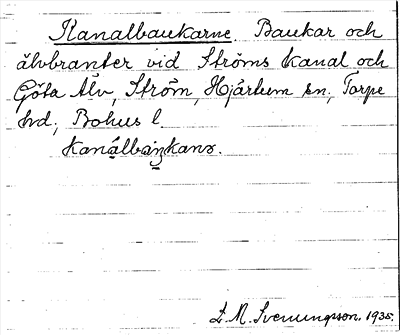 Kanalbaukarne Baukar och
älvbranter vid Ströms kanal och
Göta Älv, Ström, Hjärtum sn, Torpe
hd, Bohus l.
Kanalbaŋkanɤ.
L. M. Svenungsson. 1935.